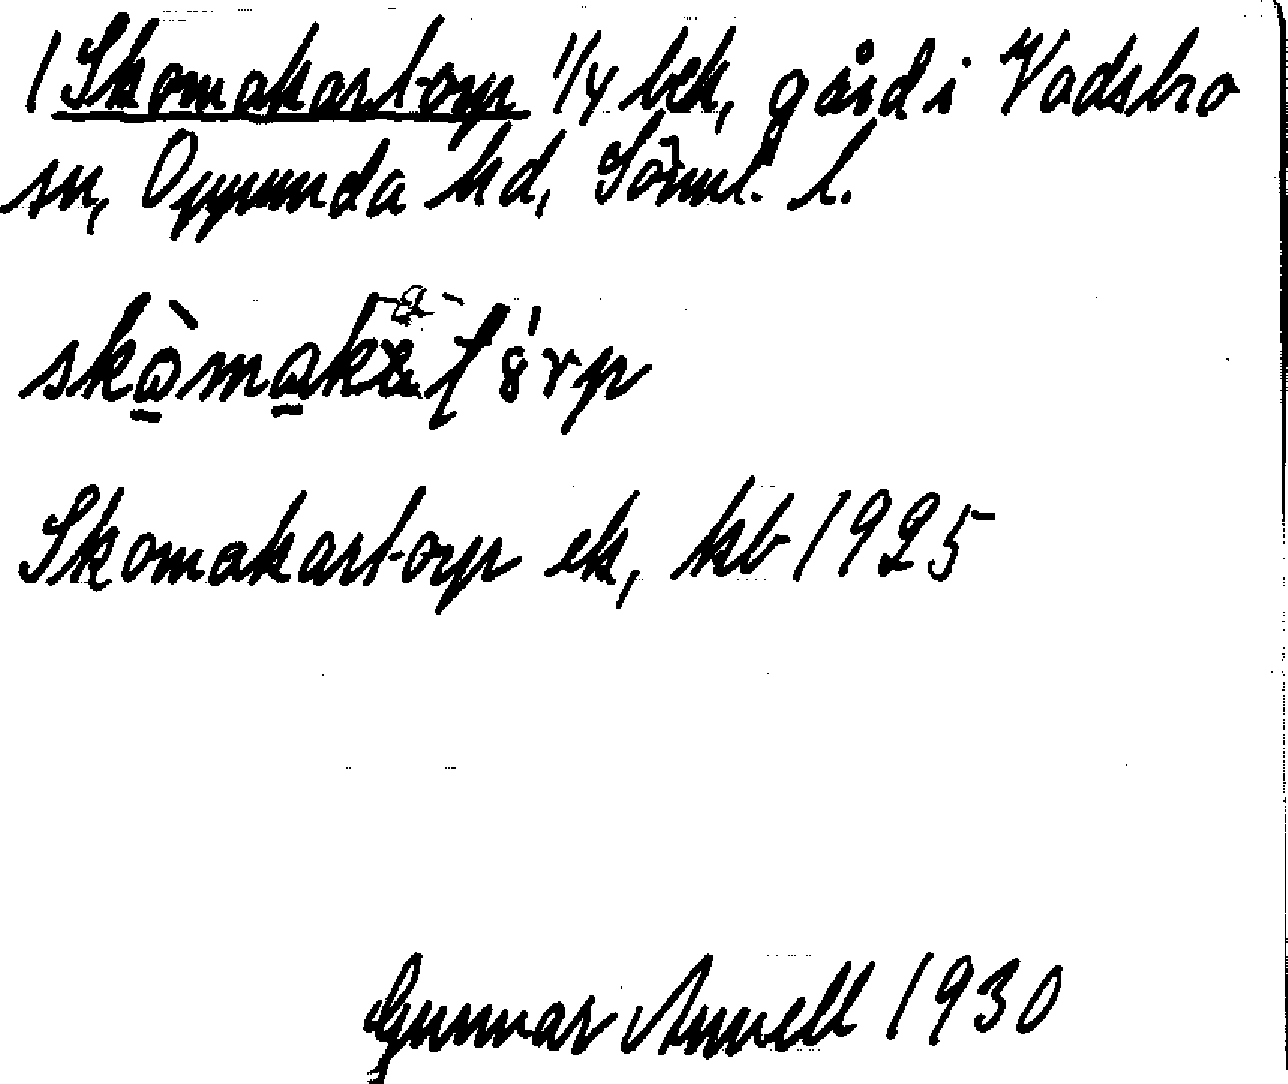 1 Skomakartorp 1/4 bek, gård i Vadsbro
sn, Oppunda hd, Sörml. l.
Skomakartorp ek, kb 1925
Gunnar Annell 1930